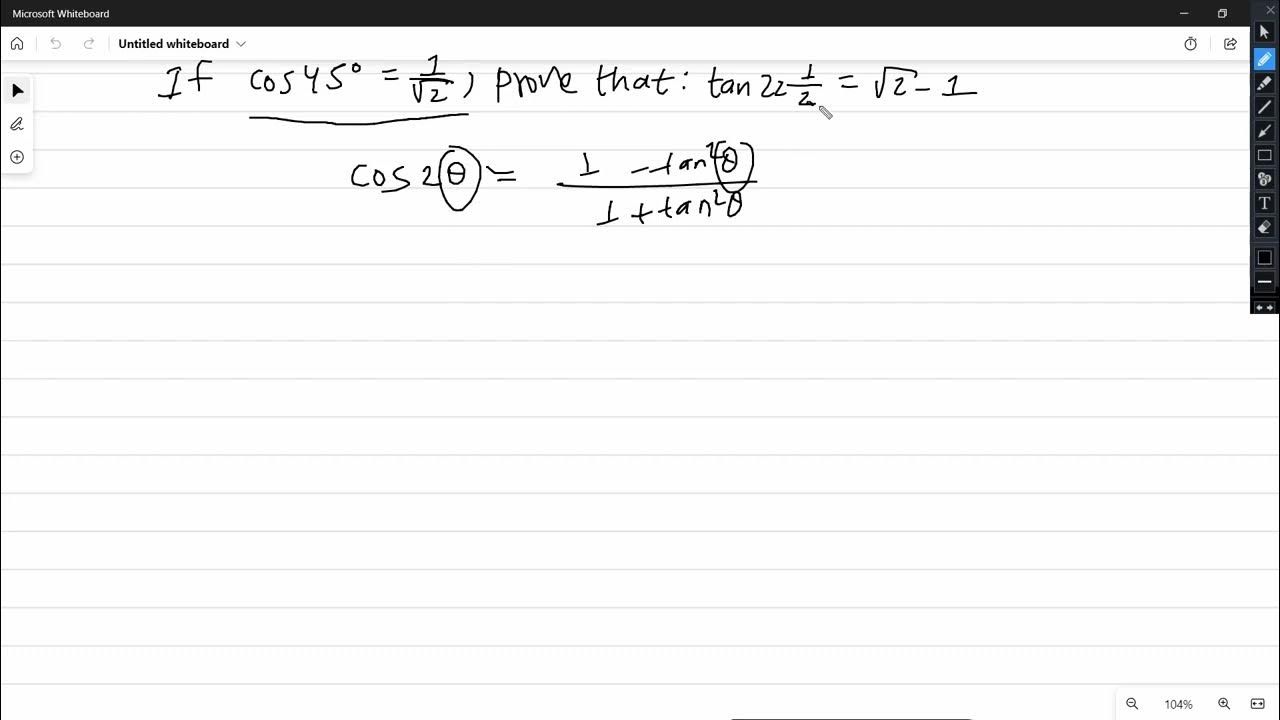 Microsoft Whiteboard
Untitled whiteboard
If cos45° = 1/√2, prove that: tan 22 1/2 = √2 - 1
cos2θ = (1 - tan²θ)/(1 + tan²θ)
T
104%